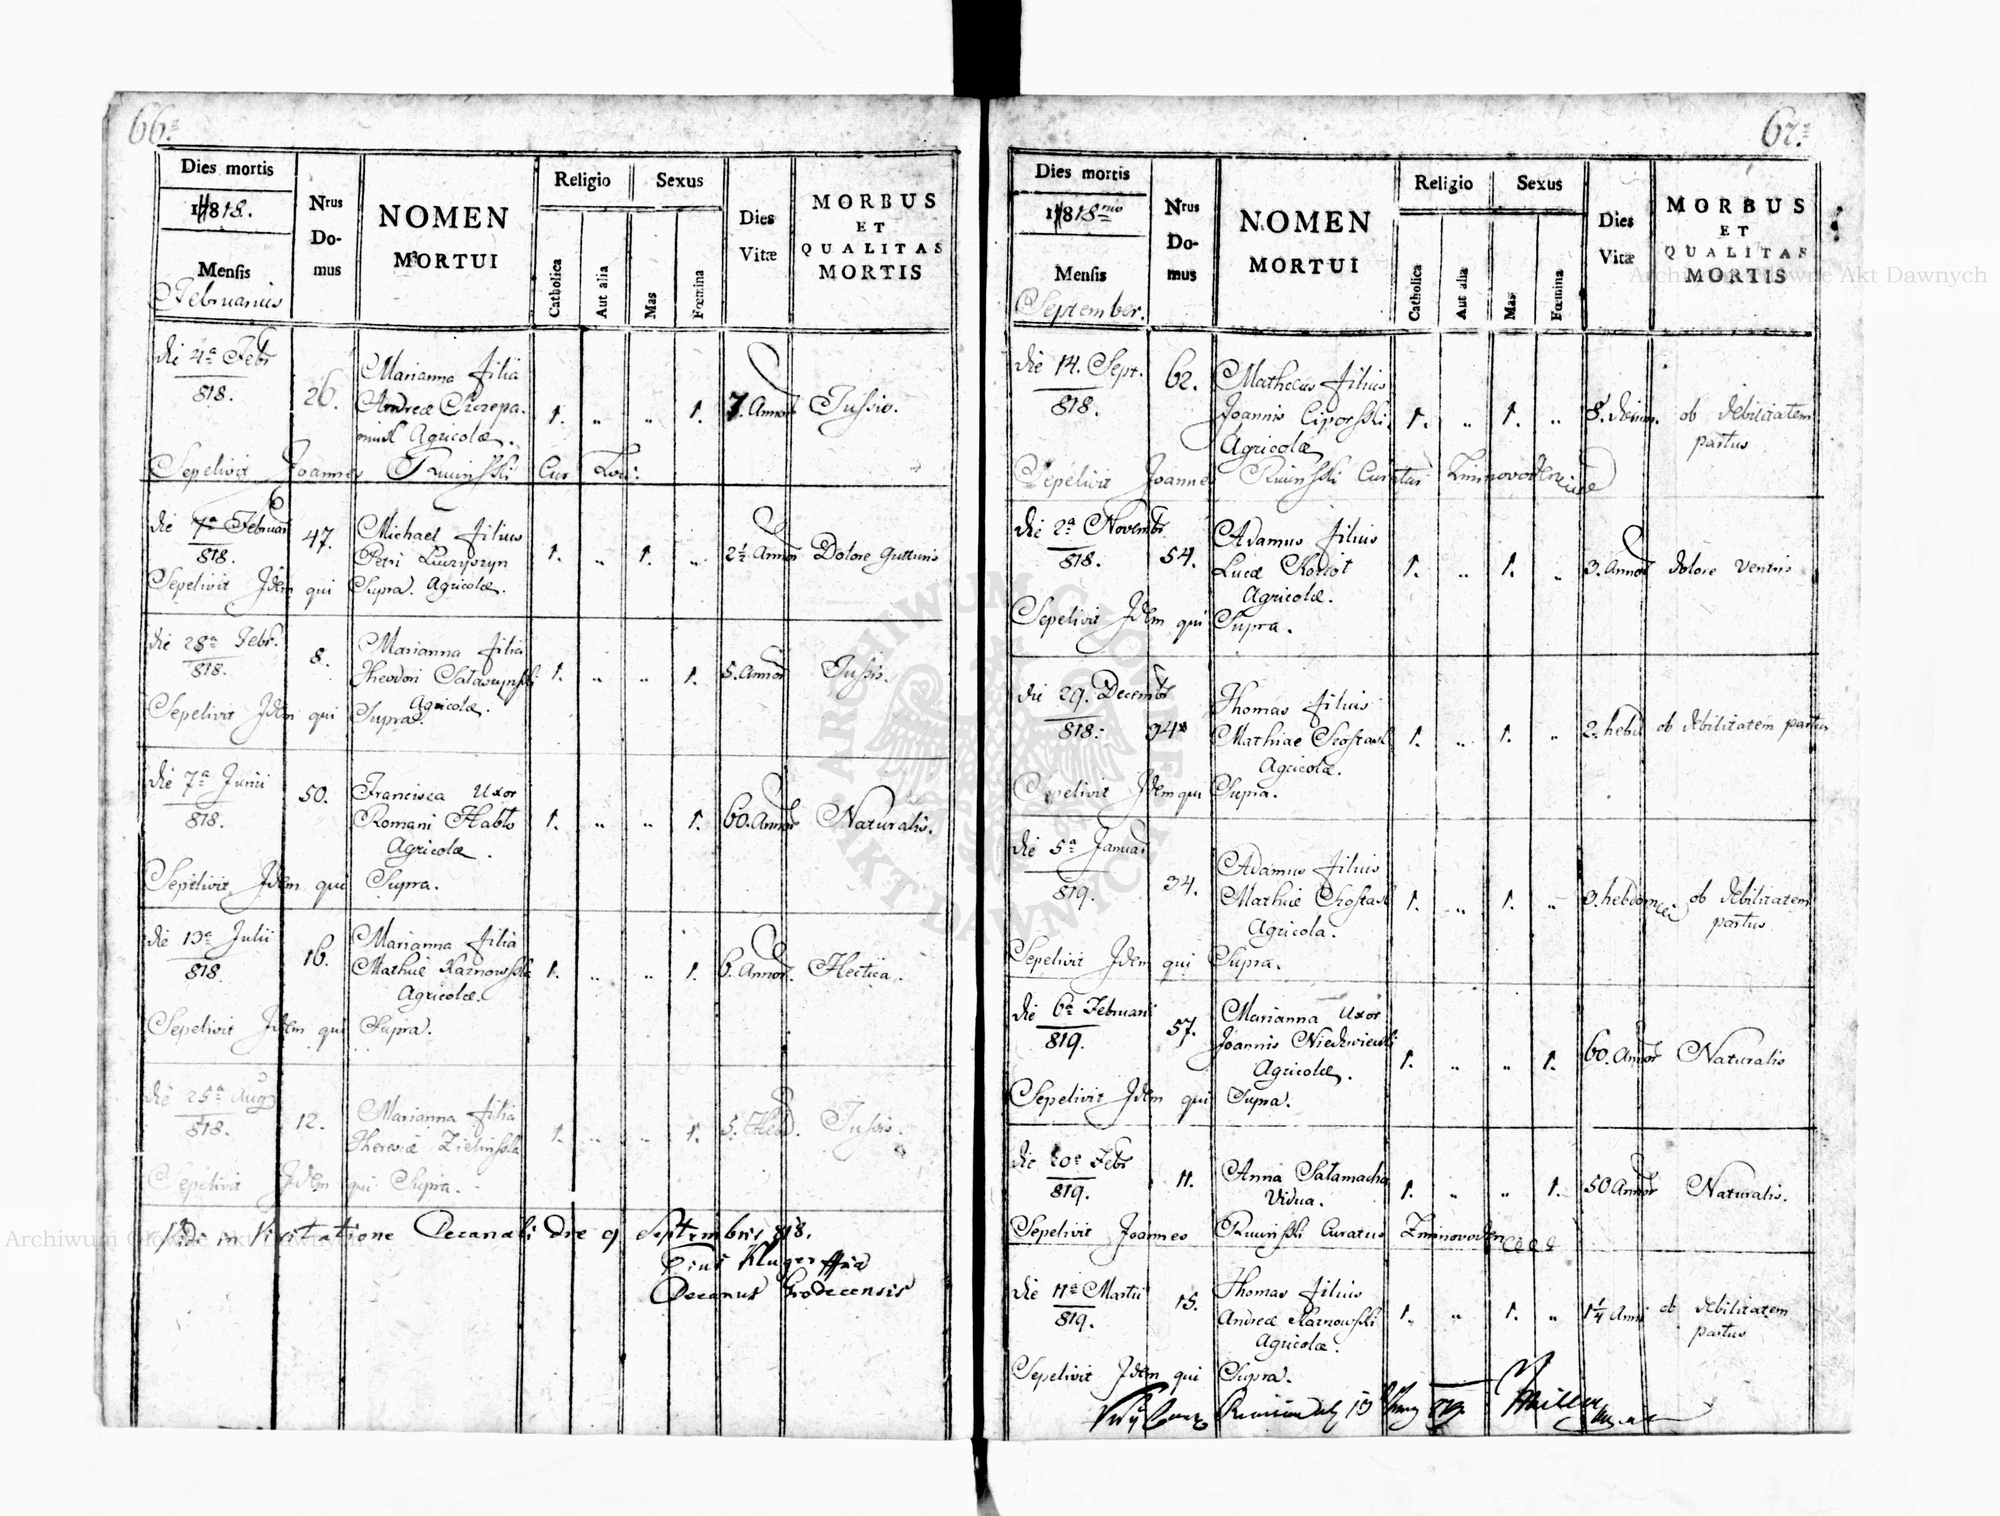 66.
Dies mortis
1818.
Mensis
Februarius
Nrus Domus
NOMEN MORTUI
Religio
Catholica
Aut alia
Sexus
Mas
Fœmina
Dies Vitæ
MORBUS ET QUALITAS MORTIS
die 4a Febr 818. 26. Marianna filia 7. Annor Tussis.
Andreæ Szczepa-
niak Agricolæ. 1. „ „ 1.
Sepelivit Joannes Rminsski Cur Loci.
die 7a Februar 818. 47. Michael filius
Petri 1. „ 1. „ 2½ Annor Dolore Gutturis
Sepelivit Idem qui Supra. Agricolæ.
die 28a Febr. 818. 8. Marianna filia
Theodori 1. „ „ 1. 5. Annor Tussis.
Agricolæ.
Sepelivit Idem qui Supra.
die 7a Junii 818. 50. Francisca Uxor
Romani Hablo 1. „ „ 1. 60. Annor Naturalis.
Agricolæ.
Sepelivit Idem qui Supra.
die 13a Julii 818. 16. Marianna filia
Mathiæ Karnowsski 1. „ „ 1. 6. Annor. Hectica.
Agricolæ.
Sepelivit Idem qui Supra.
die 25a Aug 818. 12. Marianna filia
Theresiæ Zielinsska 1. „ „ 1. 5. Hebd. Tussis.
Sepelivit Idem qui Supra.
Vidi in Visitatione Decanali die 9 Septembris 818.
Pius Kluger
Decanus Grodecensis
67.
Dies mortis
1818
Mensis
September.
Nrus Domus
NOMEN MORTUI
Religio
Catholica
Aut alia
Sexus
Mas
Fœmina
Dies Vitæ
MORBUS ET QUALITAS MORTIS
die 14. Sept. 818. 62. Matheus filius
Joannis Ciporsski 1. „ 1. „ 8. dierum. ob debilitatem
Agricolæ partus
Sepelivit Joannes Rminsski Curatus
die 2a Novembr 818. 54. Adamus filius
Lucæ 1. „ 1. „ 3. Annor dolore Ventris
Agricolæ.
Sepelivit Idem qui Supra.
die 29. Decembr 818. 34. Thomas filius
Mathiae Szostak 1. „ 1. „ 2. hebd ob debilitatem partus
Agricolæ.
Sepelivit Idem qui Supra.
die 5a Januar 819. 34. Adamus filius
Mathiæ Szostak 1. „ 1. „ 3. hebdom ob debilitatem
Agricola. partus
Sepelivit Idem qui Supra.
die 6a Februari 819. 57. Marianna Uxor
Joannis 1. „ „ 1. 60. Annor Naturalis
Agricolæ.
Sepelivit Idem qui Supra.
die 20a Febr 819. 11. Anna Salamacha 1. „ „ 1. 50 Annor Naturalis.
Vidua.
Sepelivit Joannes Rminsski Curatus
die 11a Martii 819. 15. Thomas filius
Andreæ Karnowsski 1. „ 1. „ 1¼ Anni ob debilitatem
Agricolæ. partus
Sepelivit Idem qui Supra.
ARCHIWUM GŁÓWNE AKT DAWNYCH
Archiwum Główne Akt Dawnych
Archiwum Główne Akt Dawnych